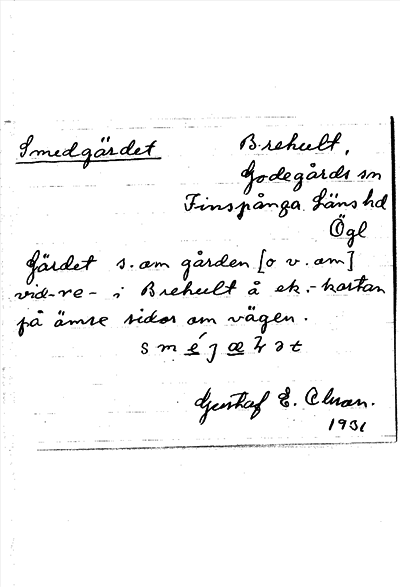 Smedgärdet
Brehult,
Godegårds sn
Finspånga Läns hd
Ögl
Gärdet s. om gården [o v. om]
vid-re- i Brehult å ek.-kartan
på ämse sidor om vägen.
Gustaf E.
1931